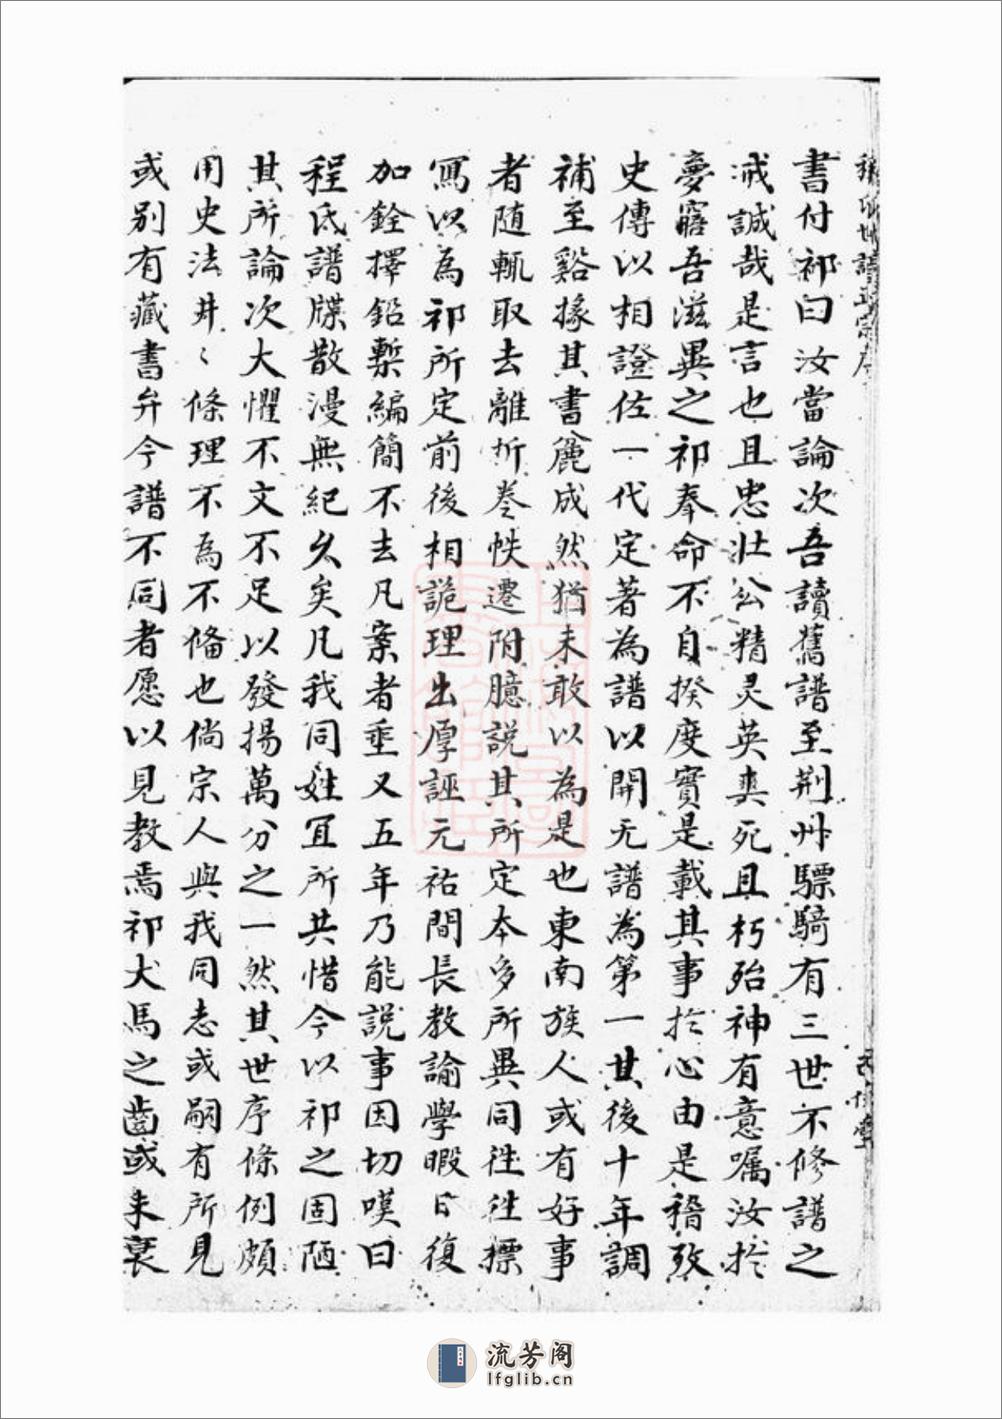 書付祁曰汝當論次吾讀舊譜至荆州驃騎有三世不修譜之
戒誠哉是言也且忠壯公精灵英爽死且朽殆神有意嘱汝扵
夢寤吾滋異之祁奉命不自揆度實是載其事扵心由是稽攷
史傳以相證佐一代定著為譜以開元譜為第一其後十年調
補至谿掾其書麄成然猶未敢以為是也東南族人或有好事
者随輒取去離折卷帙遷附臆説其所定本多所異同徃徃摽
冩以為祁所定前後相詭理出厚誣元祐間長教諭學暇日復
加銓擇鉛槧編簡不去凡案者垂又五年乃能説事因切嘆曰
程氏譜牒散漫無紀久矣凡我同姓冝所共惜今以祁之固陋
其所論次大懼不文不足以發揚萬分之一然其世序條例頗
用史法井〻條理不為不俻也倘宗人與我同志或嗣有所見
或别有藏書弁今譜不同者愿以見教焉祁犬馬之齒或未衰
流芳阁
lfglib.cn